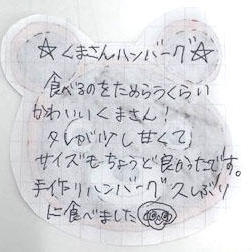 ☆くまさんハンバーグ☆
食べるのをためらうくらい
かわいいくまさん!
タレが少し甘くて、
サイズもちょうど良かったです。
手作りハンバーグ久しぶり
に食べました